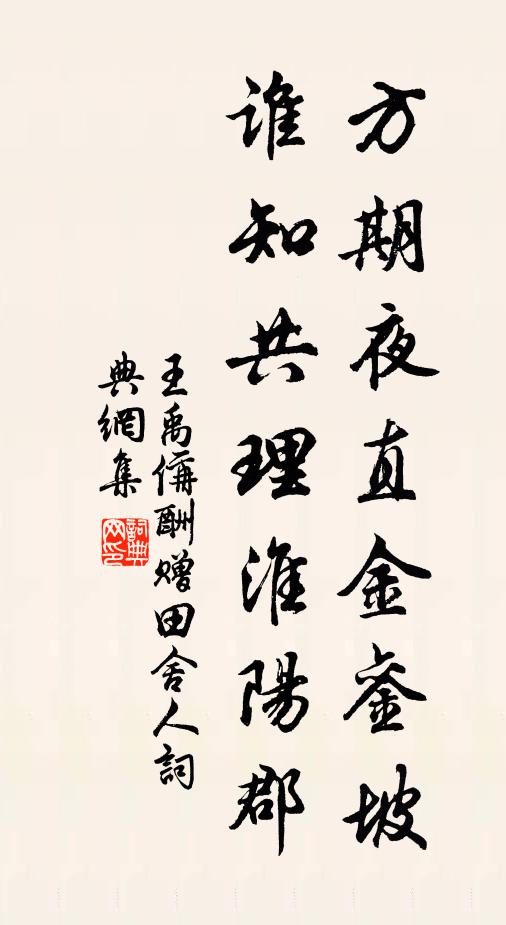 方期夜直金銮坡
谁知共理淮陽郡
王禹偁酬赠田舍人詞
典網集
詞典
网印